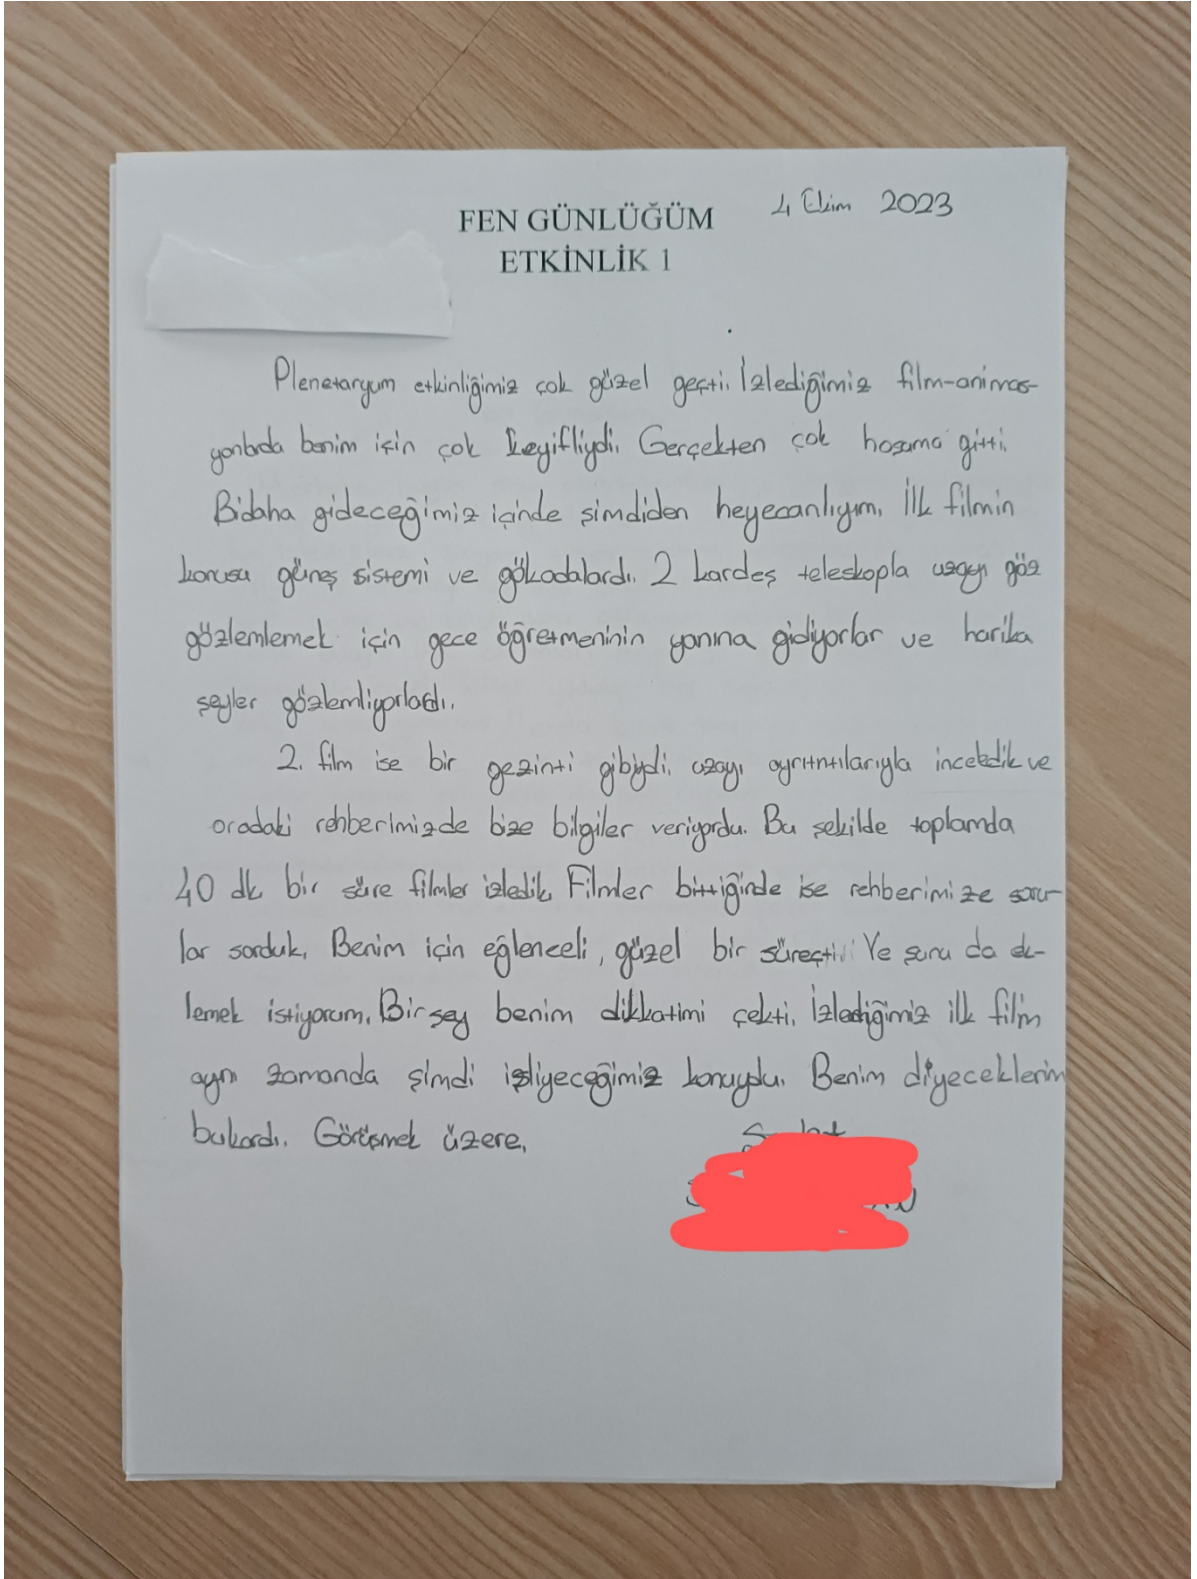 4 Ekim 2023
FEN GÜNLÜĞÜM
ETKİNLİK 1
Plenetaryum etkinliğimiz çok güzel geçti. İzlediğimiz film-animas-
yonlarda benim için çok keyifliydi. Gerçekten çok hoşuma gitti.
Bidaha gideceğimiz içinde şimdiden heyecanlıyım. İlk filmin
konusu güneş sistemi ve gökadalardı. 2 kardeş teleskopla uzayı göz
gözlemlemek için gece öğretmeninin yanına gidiyorlar ve harika
şeyler gözlemliyorlardı.
2. film ise bir gezinti gibiydi. uzayı ayrıntılarıyla inceledik ve
oradaki rehberimizde bize bilgiler veriyordu. Bu şekilde toplamda
40 dk bir süre filmler izledik. Filmler bittiğinde ise rehberimize soru-
lar sorduk. Benim için eğlenceli, güzel bir süreçti. Ve şunu da ek-
lemek istiyorum. Bir şey benim dikkatimi çekti. İzlediğimiz ilk film
aynı zamanda şimdi işliyeceğimiz konuydu. Benim diyeceklerim
bukardı. Görüşmek üzere.